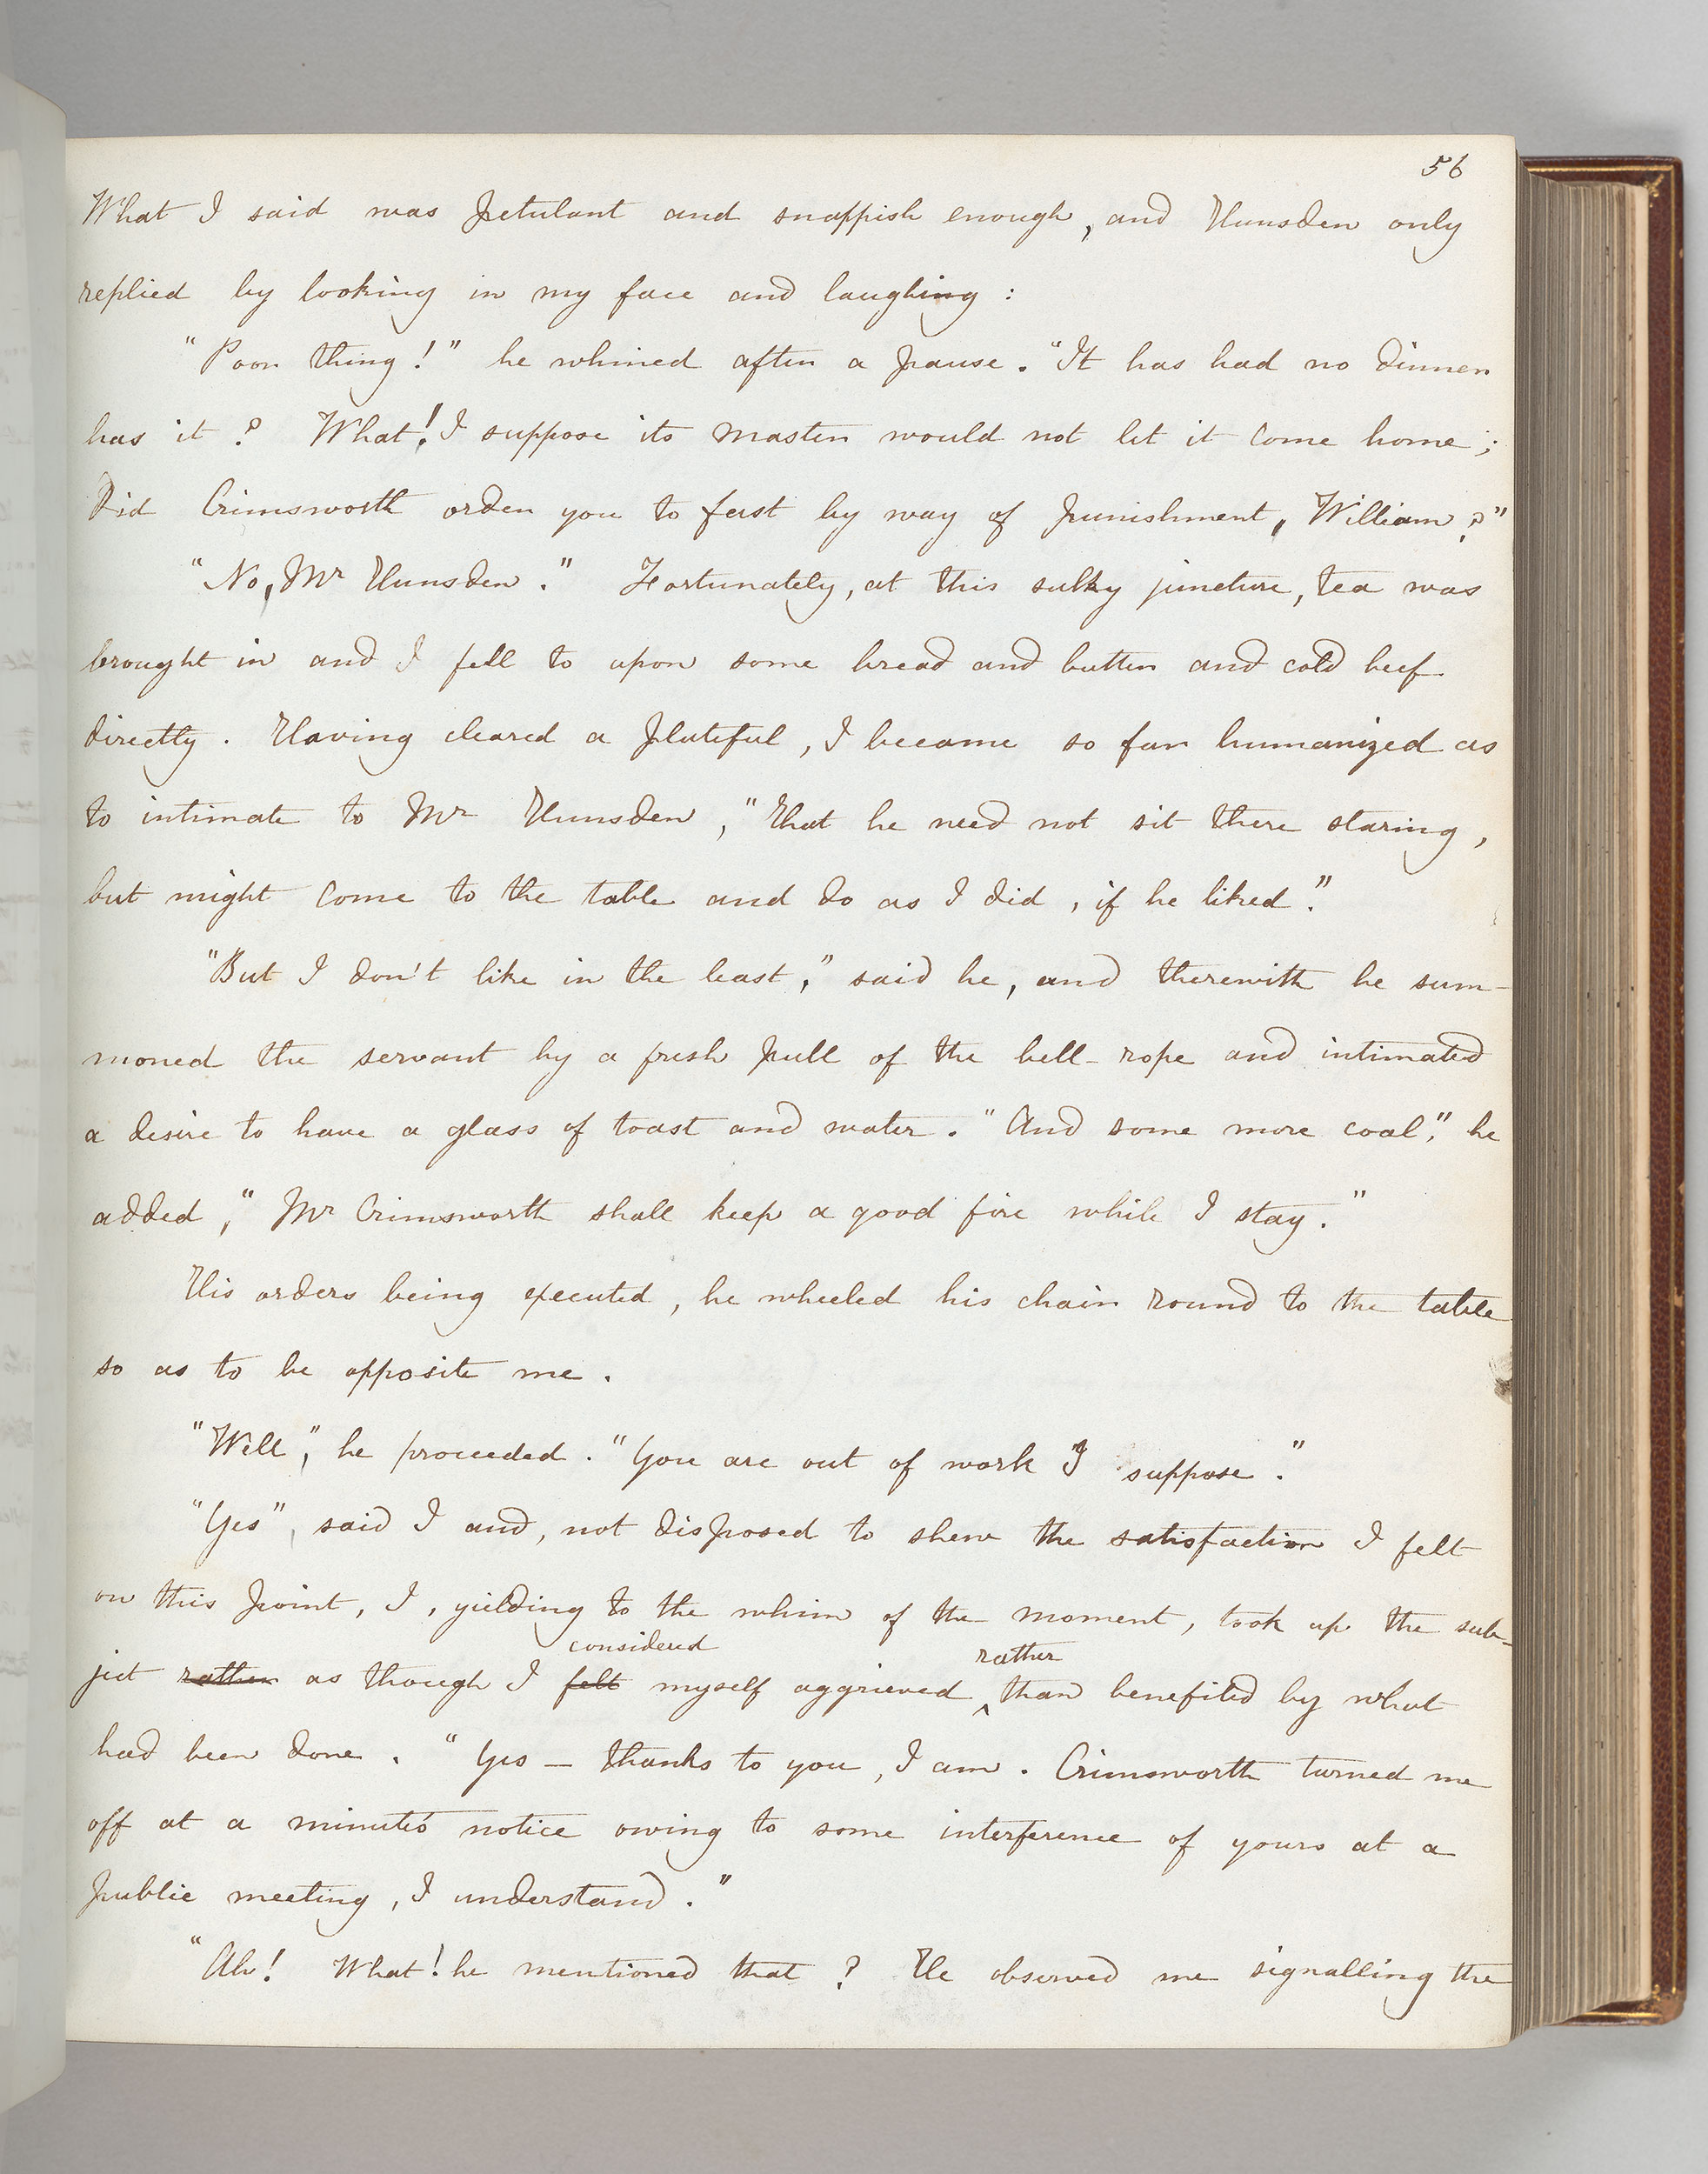 56
What I said was petulant and snappish enough, and Hunsden only
replied by looking in my face and laughing :
"Poor thing!" he whined after a pause. "It has had no dinner
has it ? What! I suppose its master would not let it come home ;
Did Crimsworth order you to fast by way of punishment, William ?"
"No, Mr Hunsden." Fortunately, at this sulky juncture, tea was
brought in and I fell to upon some bread and butter and cold beef
directly. Having cleared a plateful, I became so far humanized as
to intimate to Mr Hunsden, "that he need not sit there staring,
but might come to the table and do as I did, if he liked."
"But I don't like in the least," said he, and therewith he sum-
moned the servant by a fresh pull of the bell-rope and intimated
a desire to have a glass of toast and water. "And some more coal," he
added, "Mr Crimsworth shall keep a good fire while I stay."
His orders being executed, he wheeled his chair round to the table
so as to be opposite me.
"Well", he proceeded. "You are out of work I suppose."
"Yes", said I and, not disposed to shew the satisfaction I felt
on this point, I, yielding to the whim of the moment, took up the sub-
considered rather
ject rather as though I felt myself aggrieved ^ than benefited by what
had been done. "Yes — thanks to you, I am. Crimsworth turned me
off at a minute's notice owing to some interference of yours at a
public meeting, I understand."
"Ah! What! he mentioned that ? He observed me signalling the